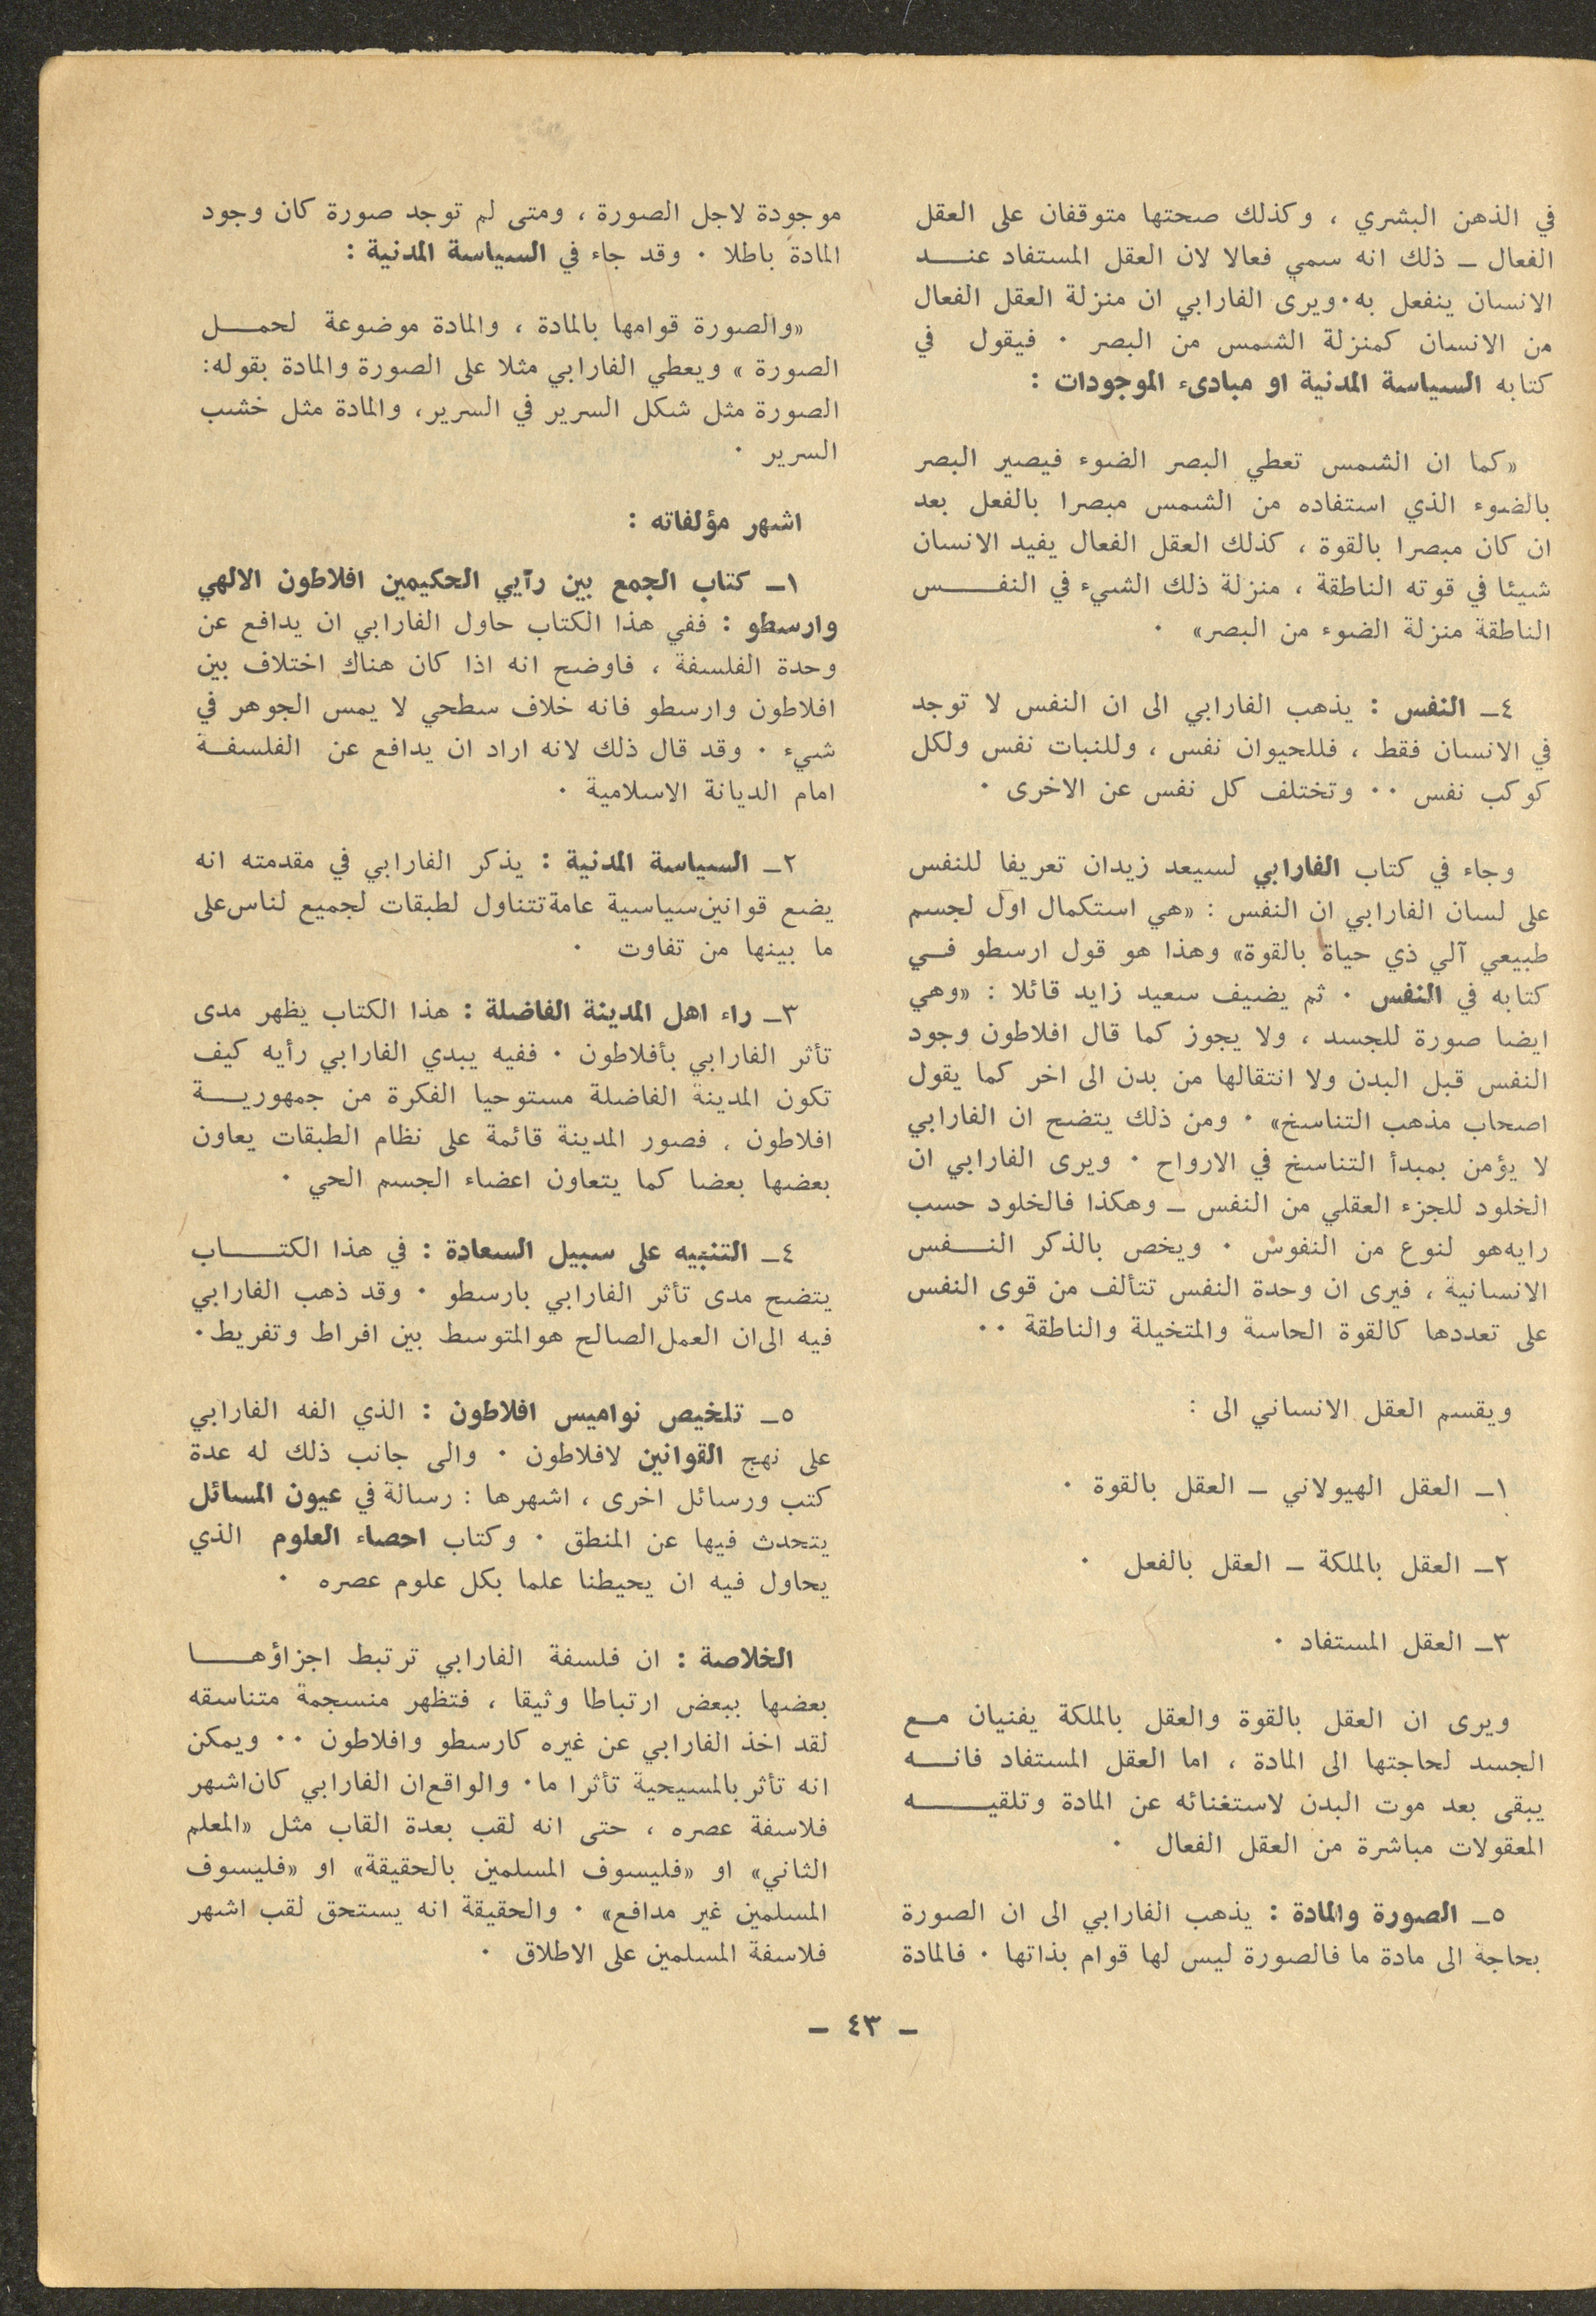 في الذهن البشري ، وكذلك صحتها متوقفان على العقل
الفعال ــ ذلك انه سمي فعالا لان العقل المستفاد عنــد
الانسان ينفعل به٠ ويرى الفارابي ان منزلة العقل الفعال
من الانسان كمنزلة الشمس من البصر ٠ فيقول في
كتابه السياسة المدنية او مبادىء الموجودات :
«كما ان الشمس تعطي البصر الضوء فيصير البصر
بالضوء الذي استفاده من الشمس مبصرا بالفعل بعد
ان كان مبصرا بالقوة ، كذلك العقل الفعال يفيد الانسان
شيئا في قوته الناطقة ، منزلة ذلك الشيء في النفــس
الناطقة منزلة الضوء من البصر» ٠
٤ــ النفس : يذهب الفارابي الى ان النفس لا توجد
في الانسان فقط ، فللحيوان نفس ، وللنبات نفس ولكل
كوكب نفس ٠٠ وتختلف كل نفس عن الاخرى ٠
وجاء في كتاب الفارابي لسيعد زيدان تعريفا للنفس
على لسان الفارابي ان النفس : «هي استكمال اول لجسم
طبيعي آلي ذي حياة بالقوة» وهذا هو قول ارسطو فــي
كتابه في النفس ٠ ثم يضيف سعيد زايد قائلا : «وهي
ايضا صورة للجسد ، ولا يجوز كما قال افلاطون وجود
النفس قبل البدن ولا انتقالها من بدن الى اخر كما يقول
اصحاب مذهب التناسخ» ٠ ومن ذلك يتضح ان الفارابي
لا يؤمن بمبدأ التناسخ في الارواح ٠ ويرى الفارابي ان
الخلود للجزء العقلي من النفس ــ وهكذا فالخلود حسب
رايه هو لنوع من النفوس ٠ ويخص بالذكر النــفس
الانسانية ، فيرى ان وحدة النفس تتألف من قوى النفس
على تعددها كالقوة الحاسة والمتخيلة والناطقة ٠٠
ويقسم العقل الانساني الى :
١ــ العقل الهيولاني ــ العقل بالقوة ٠
٢ــ العقل بالملكة ــ العقل بالفعل ٠
٣ــ العقل المستفاد ٠
ويرى ان العقل بالقوة والعقل بالملكة يفنيان مــع
الجسد لحاجتها الى المادة ، اما العقل المستفاد فانــه
يبقى بعد موت البدن لاستغنائه عن المادة وتلقيــه
المعقولات مباشرة من العقل الفعال ٠
٥ــ الصورة والمادة : يذهب الفارابي الى ان الصورة
بحاجة الى مادة ما فالصورة ليس لها قوام بذاتها ٠ فالمادة
موجودة لاجل الصورة ، ومتى لم توجد صورة كان وجود
المادة باطلا ٠ وقد جاء في السياسة المدنية :
«والصورة قوامها بالمادة ، والمادة موضوعة لحمــل
الصورة » ويعطي الفارابي مثلا على الصورة والمادة بقوله:
الصورة مثل شكل السرير في السرير، والمادة مثل خشب
السرير ٠
اشهر مؤلفاته :
١ــ كتاب الجمع بين رآيي الحكيمين افلاطون الالهي
وارسطو : ففي هذا الكتاب حاول الفارابي ان يدافع عن
وحدة الفلسفة ، فاوضح انه اذا كان هناك اختلاف بين
افلاطون وارسطو فانه خلاف سطحي لا يمس الجوهر في
شيء ٠ وقد قال ذلك لانه اراد ان يدافع عن الفلسفــة
امام الديانة الاسلامية ٠
٢ــ السياسة المدنية : يذكر الفارابي في مقدمته انه
يضع قوانين سياسية عامة تتناول لطبقات لجميع لناس على
ما بينها من تفاوت ٠
٣ــ راء اهل المدينة الفاضلة : هذا الكتاب يظهر مدى
تأثر الفارابي بأفلاطون ٠ ففيه يبدي الفارابي رأيه كيف
تكون المدينة الفاضلة مستوحيا الفكرة من جمهوريــة
افلاطون ، فصور المدينة قائمة على نظام الطبقات يعاون
بعضها بعضا كما يتعاون اعضاء الجسم الحي ٠
٤ــ التنبيه على سبيل السعادة : في هذا الكتــاب
يتضح مدى تأثر الفارابي بارسطو ٠ وقد ذهب الفارابي
فيه الى ان العمل الصالح هو المتوسط بين افراط وتفريط٠
٥ــ تلخيص نواميس افلاطون : الذي الفه الفارابي
على نهج القوانين لافلاطون ٠ والى جانب ذلك له عدة
كتب ورسائل اخرى ، اشهرها : رسالة في عيون المسائل
يتحدث فيها عن المنطق ٠ وكتاب احصاء العلوم الذي
يحاول فيه ان يحيطنا علما بكل علوم عصره ٠
الخلاصة : ان فلسفة الفارابي ترتبط اجزاؤهــا
بعضها ببعض ارتباطا وثيقا ، فتظهر منسجمة متناسقه
لقد اخذ الفارابي عن غيره كارسطو وافلاطون ٠٠ ويمكن
انه تأثر بالمسيحية تأثرا ما٠ والواقع ان الفارابي كان اشهر
فلاسفة عصره ، حتى انه لقب بعدة القاب مثل «المعلم
الثاني» او «فليسوف المسلمين بالحقيقة» او «فليسوف
المسلمين غير مدافع» ٠ والحقيقة انه يستحق لقب اشهر
فلاسفة المسلمين على الاطلاق ٠
ــ ٤٣ ــ